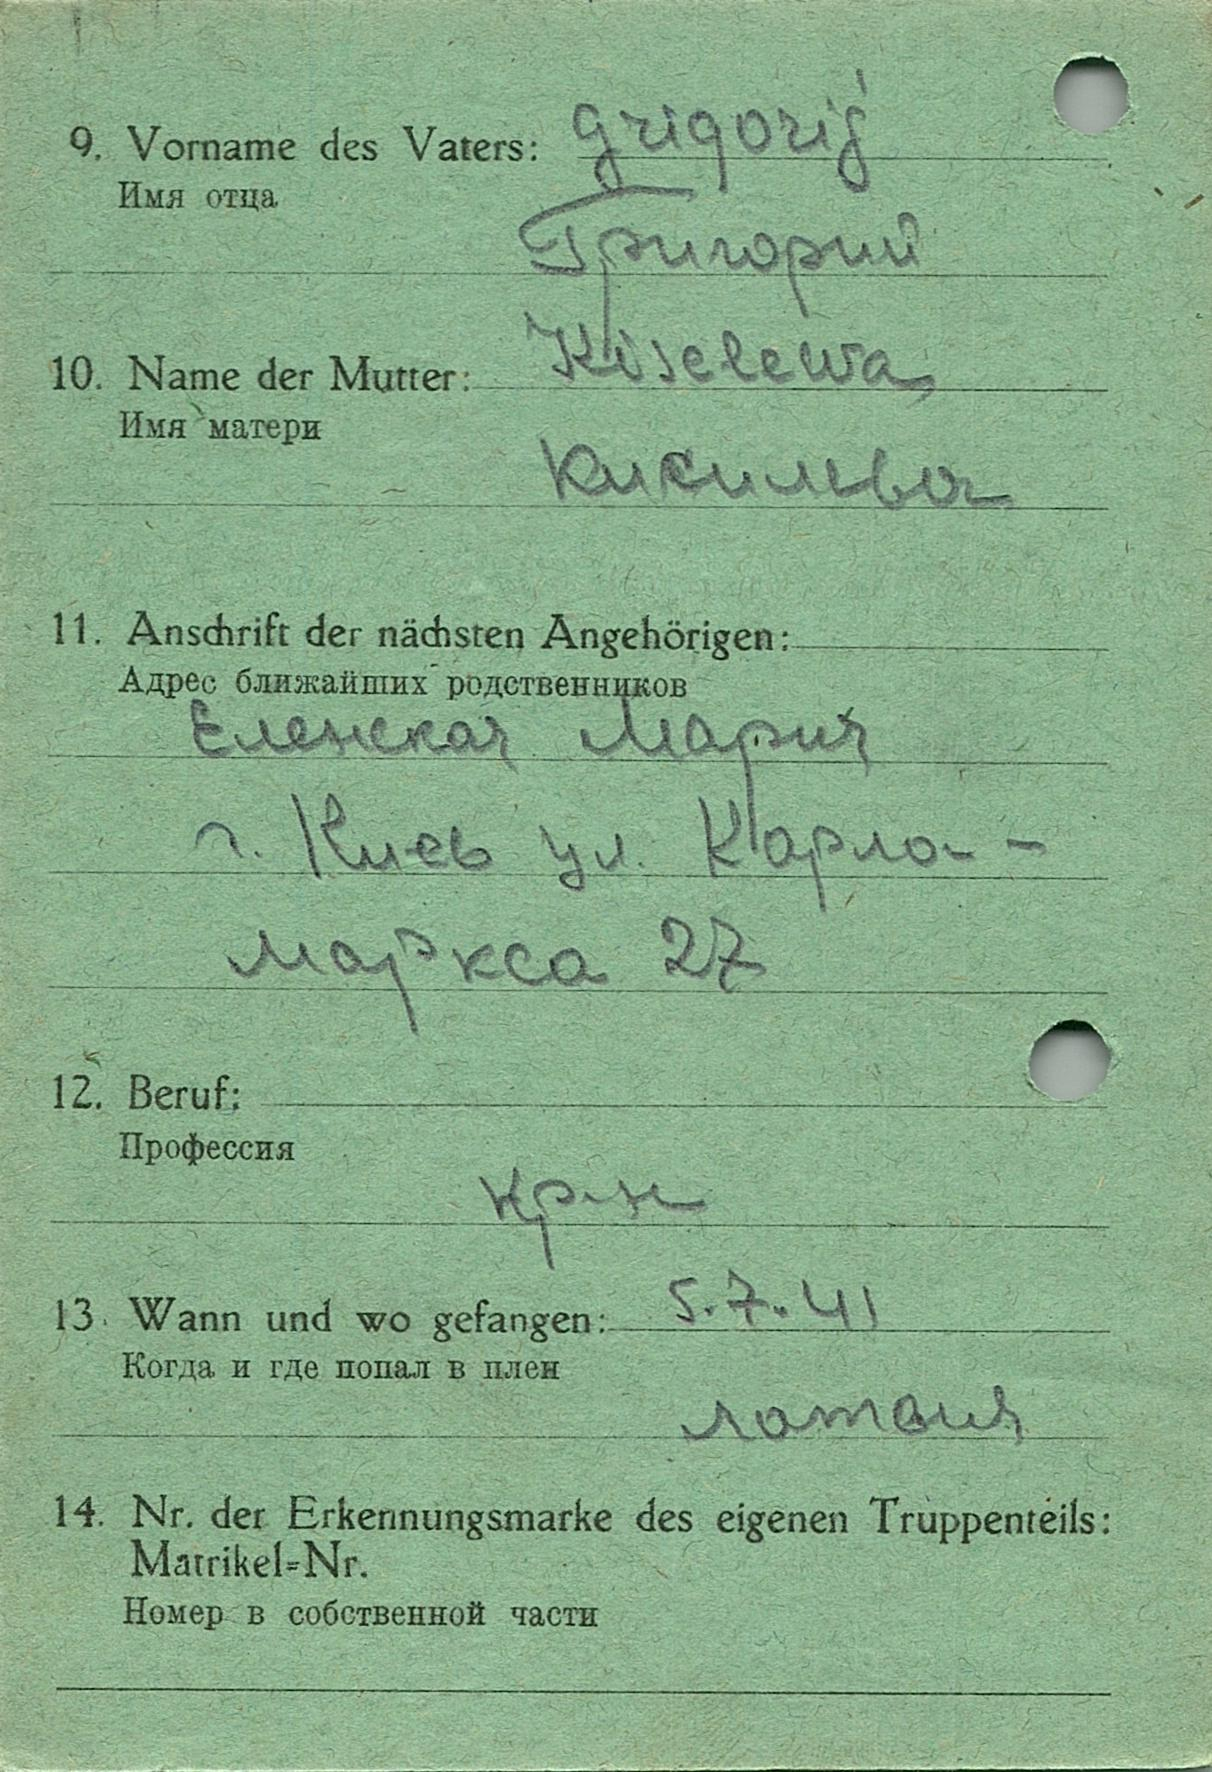 9. Vorname des Vaters: Grigorij
Имя отца
Григорий
10. Name der Mutter: Kiselewa
Имя матери
Кисильва
11. Anschrift der nächsten Angehörigen:
Адрес ближайших родственников
Еленская Мария
г. Киев ул. Карла-
Маркса 27
12. Beruf:
Профессия
кр-н
13. Wann und wo gefangen: 5.7.41
Когда и где попал в плен
Латвия
14. Nr. der Erkennungsmarke des eigenen Truppenteils:
Matrikel=Nr.
Номер в собственной части